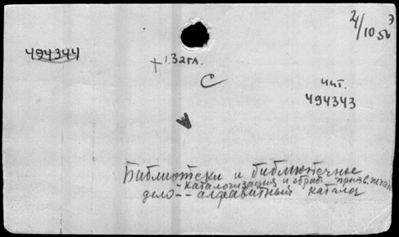 2/10 56 Э
494344
+ 1.32гл.
С
чит.
494343
А
Библиотеки и библиотечное
- каталогизация и обраб. произв. печати
дело -- алфавитный каталог